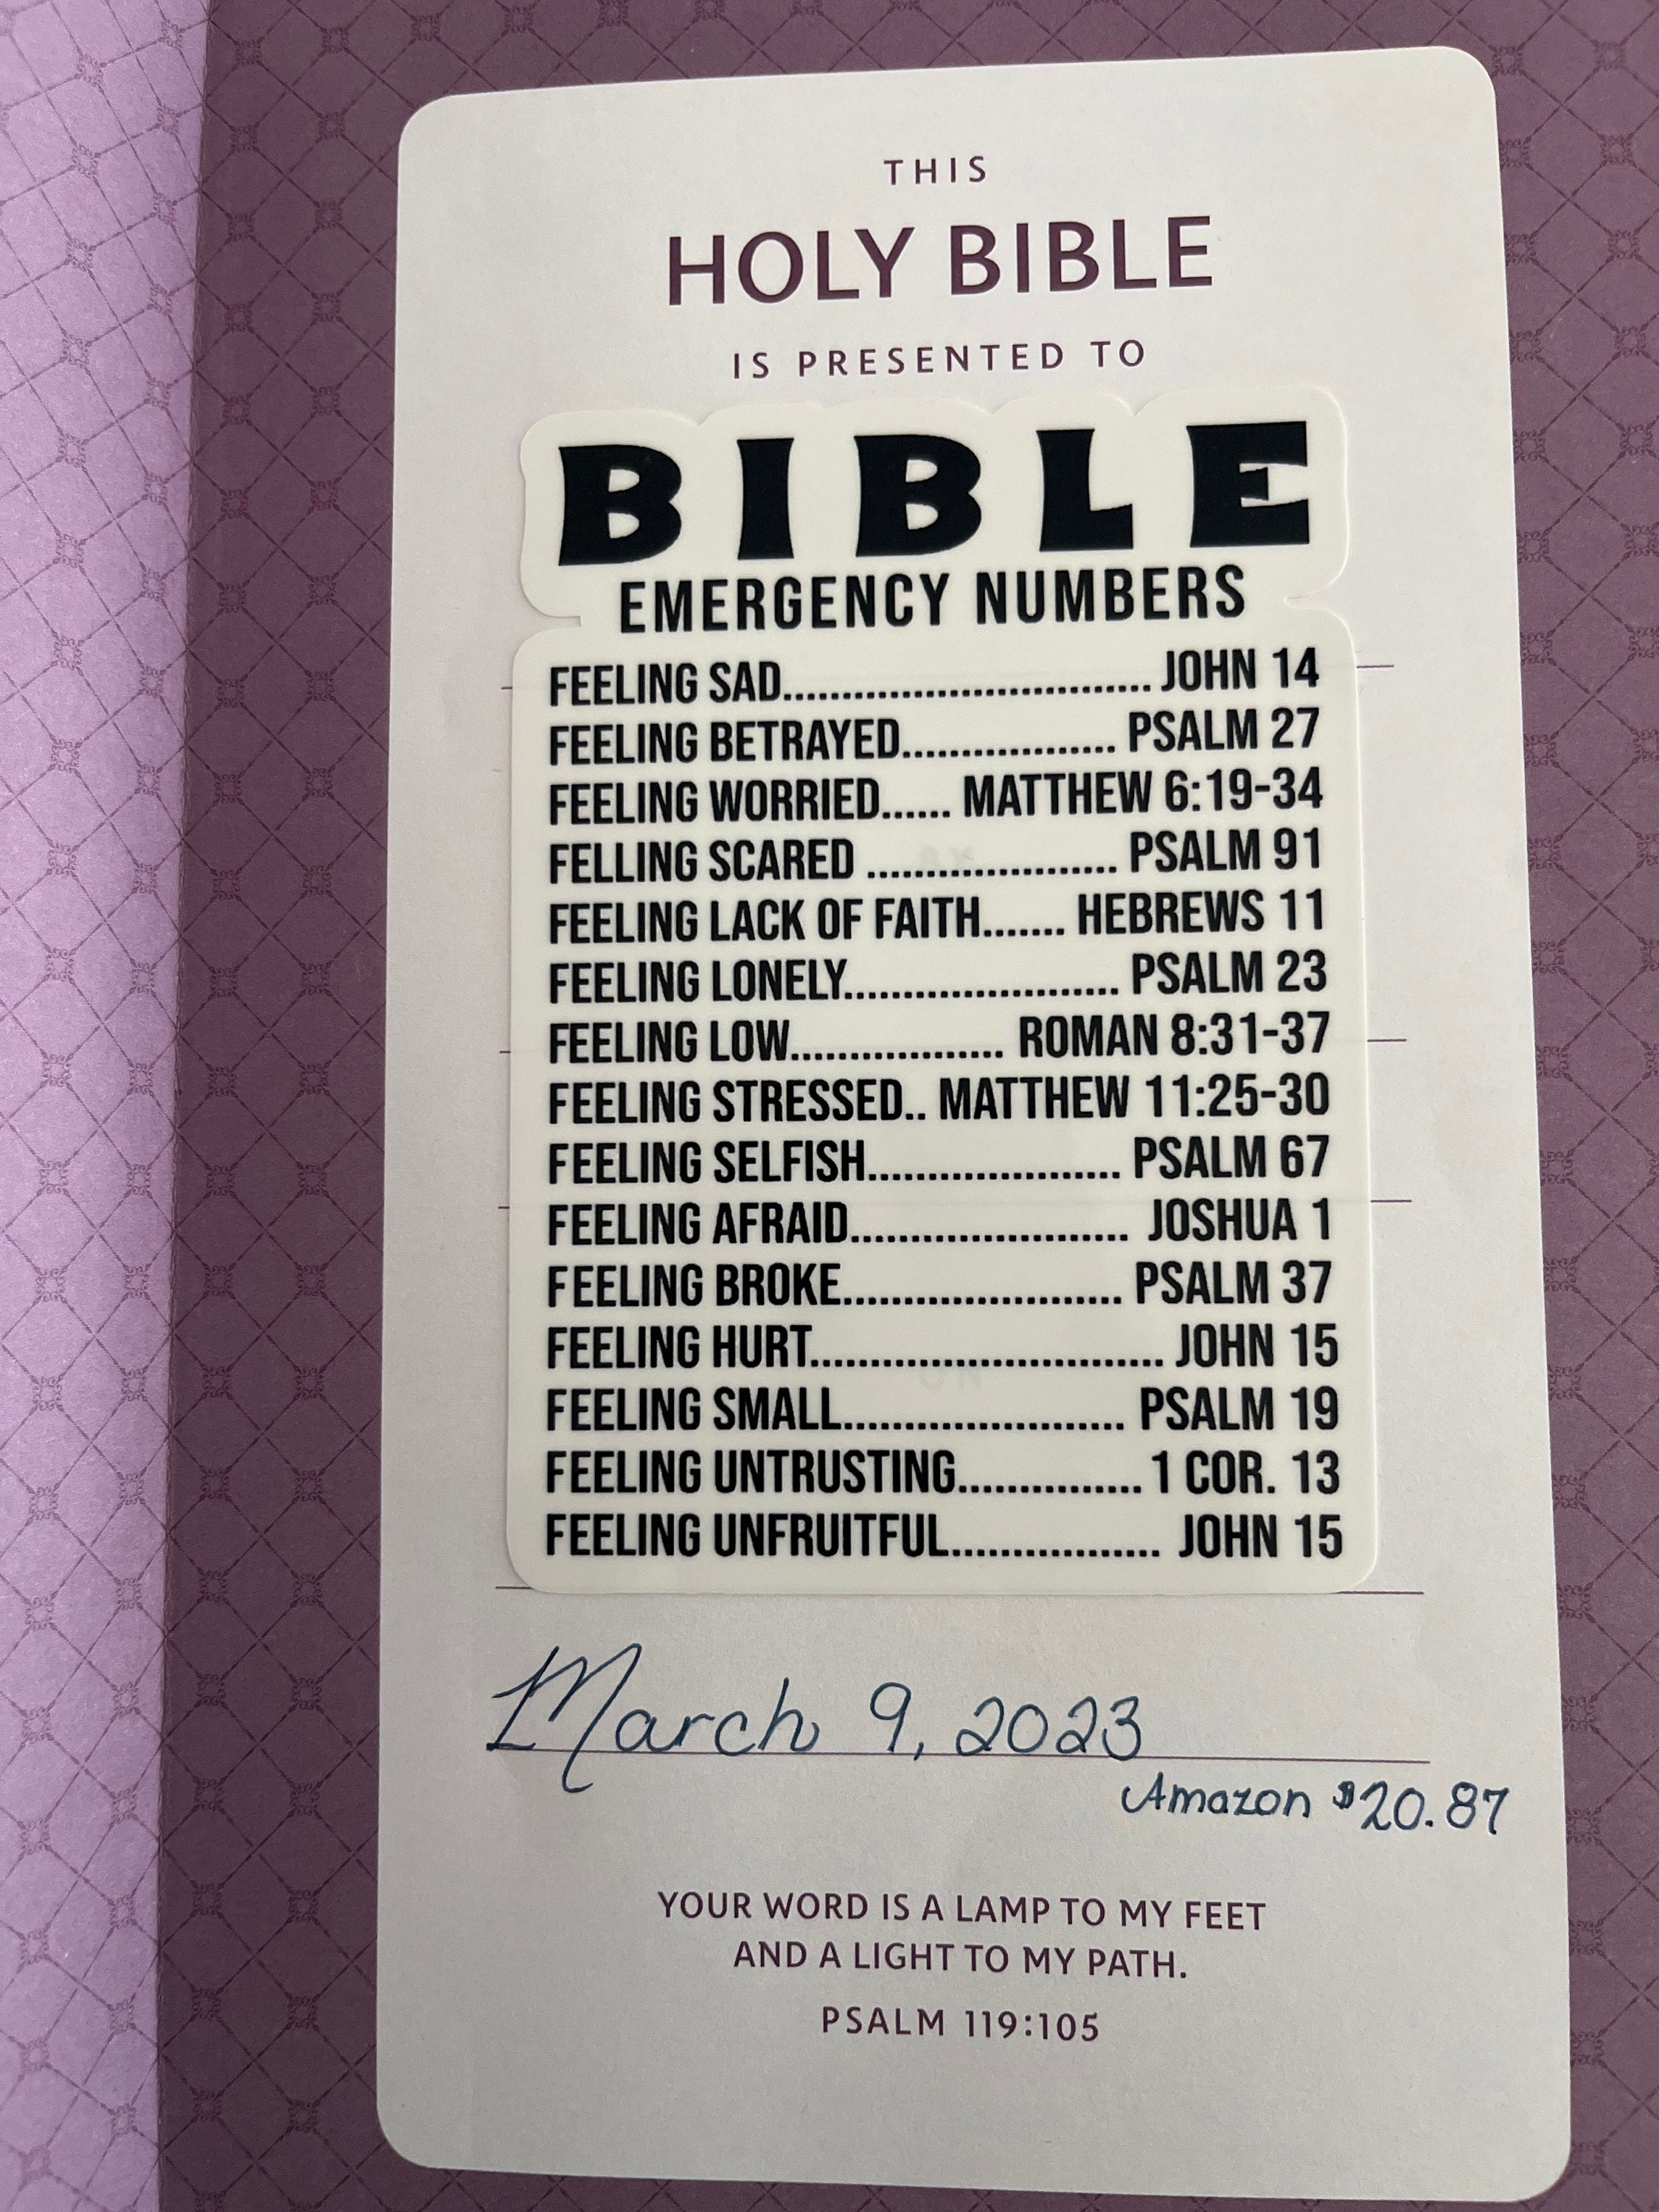 THIS
HOLY BIBLE
IS PRESENTED TO
BIBLE
EMERGENCY NUMBERS
FEELING SAD............................... JOHN 14
FEELING BETRAYED.................. PSALM 27
FEELING WORRIED...... MATTHEW 6:19-34
FELLING SCARED ..................... PSALM 91
FEELING LACK OF FAITH....... HEBREWS 11
FEELING LONELY....................... PSALM 23
FEELING LOW.................. ROMAN 8:31-37
FEELING STRESSED.. MATTHEW 11:25-30
FEELING SELFISH..................... PSALM 67
FEELING AFRAID....................... JOSHUA 1
FEELING BROKE....................... PSALM 37
FEELING HURT............................. JOHN 15
FEELING SMALL....................... PSALM 19
FEELING UNTRUSTING............... 1 COR. 13
FEELING UNFRUITFUL................. JOHN 15
March 9, 2023
Amazon $20.87
YOUR WORD IS A LAMP TO MY FEET
AND A LIGHT TO MY PATH.
PSALM 119:105